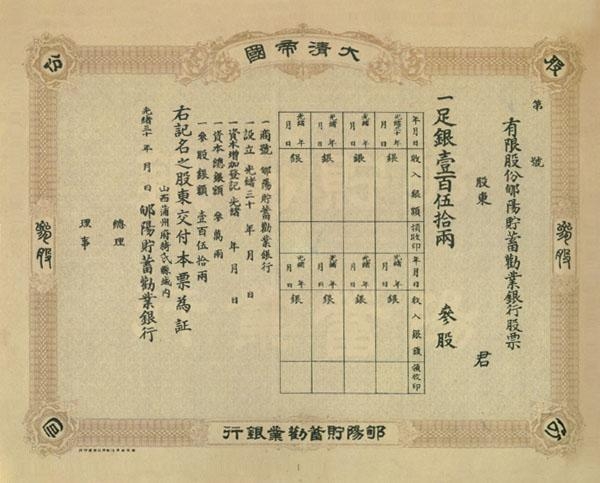 大清帝國
股份
公司
第 號
有限股份郇陽貯蓄勸業銀行股票
股東 君
一足銀壹百伍拾兩 參股
年月日 收入銀額 領收印
光緒三十年 月 日 銀
光緒 年 月 日 銀
光緒 年 月 日 銀
光緒 年 月 日 銀
年月日 收入銀額 領收印
光緒 年 月 日 銀
光緒 年 月 日 銀
光緒 年 月 日 銀
光緒 年 月 日 銀
一商號 郇陽貯蓄勸業銀行
一設立 光緒三十 年 月 日
一資本增加登記 光緒 年 月 日
一資本總銀額 參萬兩
一參股銀額 壹百伍拾兩
右記名之股東交付本票為証
山西蒲州府猗氏縣城內
光緒三十 年 月 日 郇陽貯蓄勸業銀行
總理
理事
郇陽貯蓄勸業銀行